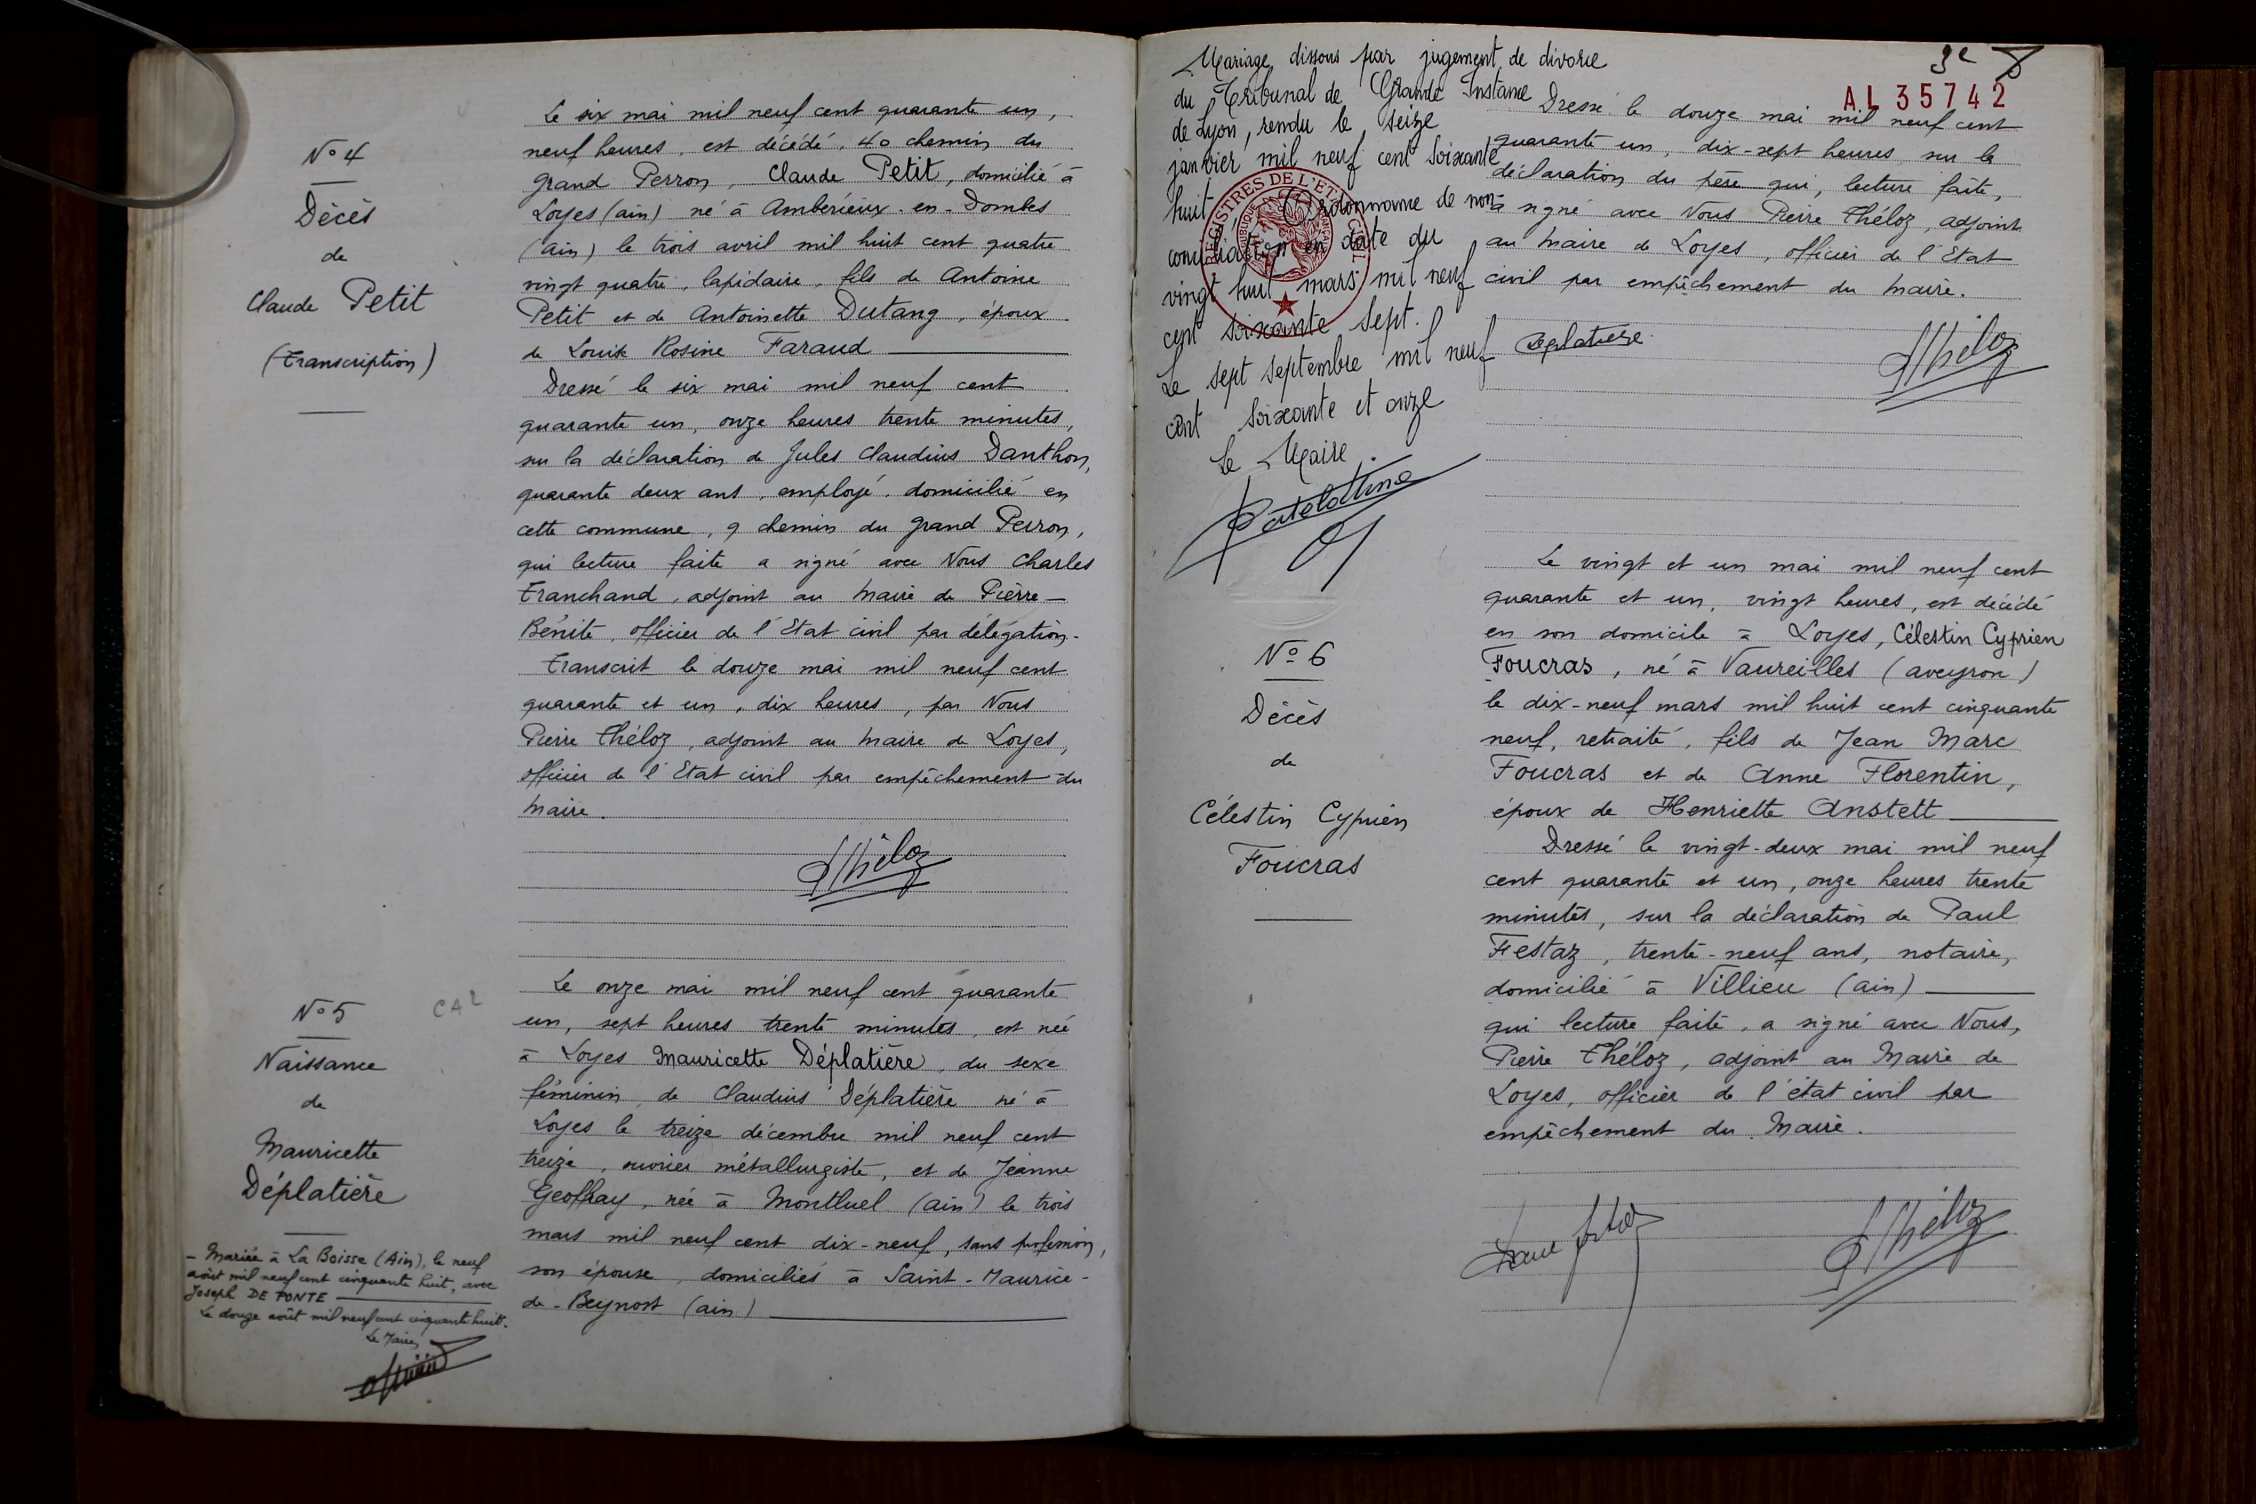 N° 4
Décès
de
Claude Petit
(Transcription)
Le six mai mil neuf cent quarante un,
neuf heures, est décédé, 40 chemin du
Grand Perron, Claude Petit, domicilié à
Loyes (ain) né à Ambérieux-en-Dombes
(ain) le trois avril mil huit cent quatre
vingt quatre, lapidaire, fils de Antoine
Petit et de Antoinette Dutang, époux
de Louise Rosine Faraud
Dressé le six mai mil neuf cent
quarante un, onze heures trente minutes,
sur la déclaration de Jules Claudius Danthon,
quarante deux ans, employé, domicilié en
cette commune, 9 chemin du Grand Perron,
qui lecture faite a signé avec Nous Charles
Franchand, adjoint au maire de Pierre-
Bénite, officier de l'Etat civil par délégation.
Transcrit le douze mai mil neuf cent
quarante et un, dix heures, par Nous
Pierre Théloz, adjoint au maire de Loyes,
officier de l'Etat civil par empêchement du
maire.
PThéloz
N° 5
CA2
Naissance
de
Mauricette
Déplatière
- Mariée à La Boisse (Ain), le neuf
août mil neuf cent cinquante huit, avec
Joseph DE PONTE
Le douze août mil neuf cent cinquante huit.
Le Maire,
Le onze mai mil neuf cent quarante
un, sept heures trente minutes, est née
à Loyes Mauricette Déplatière, du sexe
féminin, de Claudius Déplatière né à
Loyes le treize décembre mil neuf cent
treize, ouvrier métallurgiste, et de Jeanne
Geoffray, née à Montluel (ain) le trois
mars mil neuf cent dix-neuf, sans profession,
son épouse, domiciliés à Saint-Maurice-
de-Beynost (ain)
Mariage dissous par jugement de divorce
du Tribunal de Grande Instance
de Lyon, rendu le seize
janvier mil neuf cent soixante
huit. Ordonnance de non
conciliation en date du
vingt huit mars mil neuf
cent soixante sept.
Le sept septembre mil neuf
cent soixante et onze
Le Maire.
REGISTRES DE L'ETAT CIVIL
AL 35742
Dressé le douze mai mil neuf cent
quarante un, dix-sept heures, sur la
déclaration du père qui, lecture faite,
a signé avec Nous Pierre Théloz, adjoint
au maire de Loyes, officier de l'Etat
civil par empêchement du maire.
Déplatière
PThéloz
N° 6
Décès
de
Célestin Cyprien
Foucras
Le vingt et un mai mil neuf cent
quarante et un, vingt heures, est décédé
en son domicile à Loyes, Célestin Cyprien
Foucras, né à Vaureilles (aveyron)
le dix-neuf mars mil huit cent cinquante
neuf, retraité, fils de Jean Marc
Foucras et de Anne Florentin,
époux de Henriette Anstett
Dressé le vingt-deux mai mil neuf
cent quarante et un, onze heures trente
minutes, sur la déclaration de Paul
Festaz, trente-neuf ans, notaire,
domicilié à Villieu (ain)
qui lecture faite, a signé avec Nous,
Pierre Théloz, adjoint au Maire de
Loyes, officier de l'état civil par
empêchement du Maire.
PThéloz